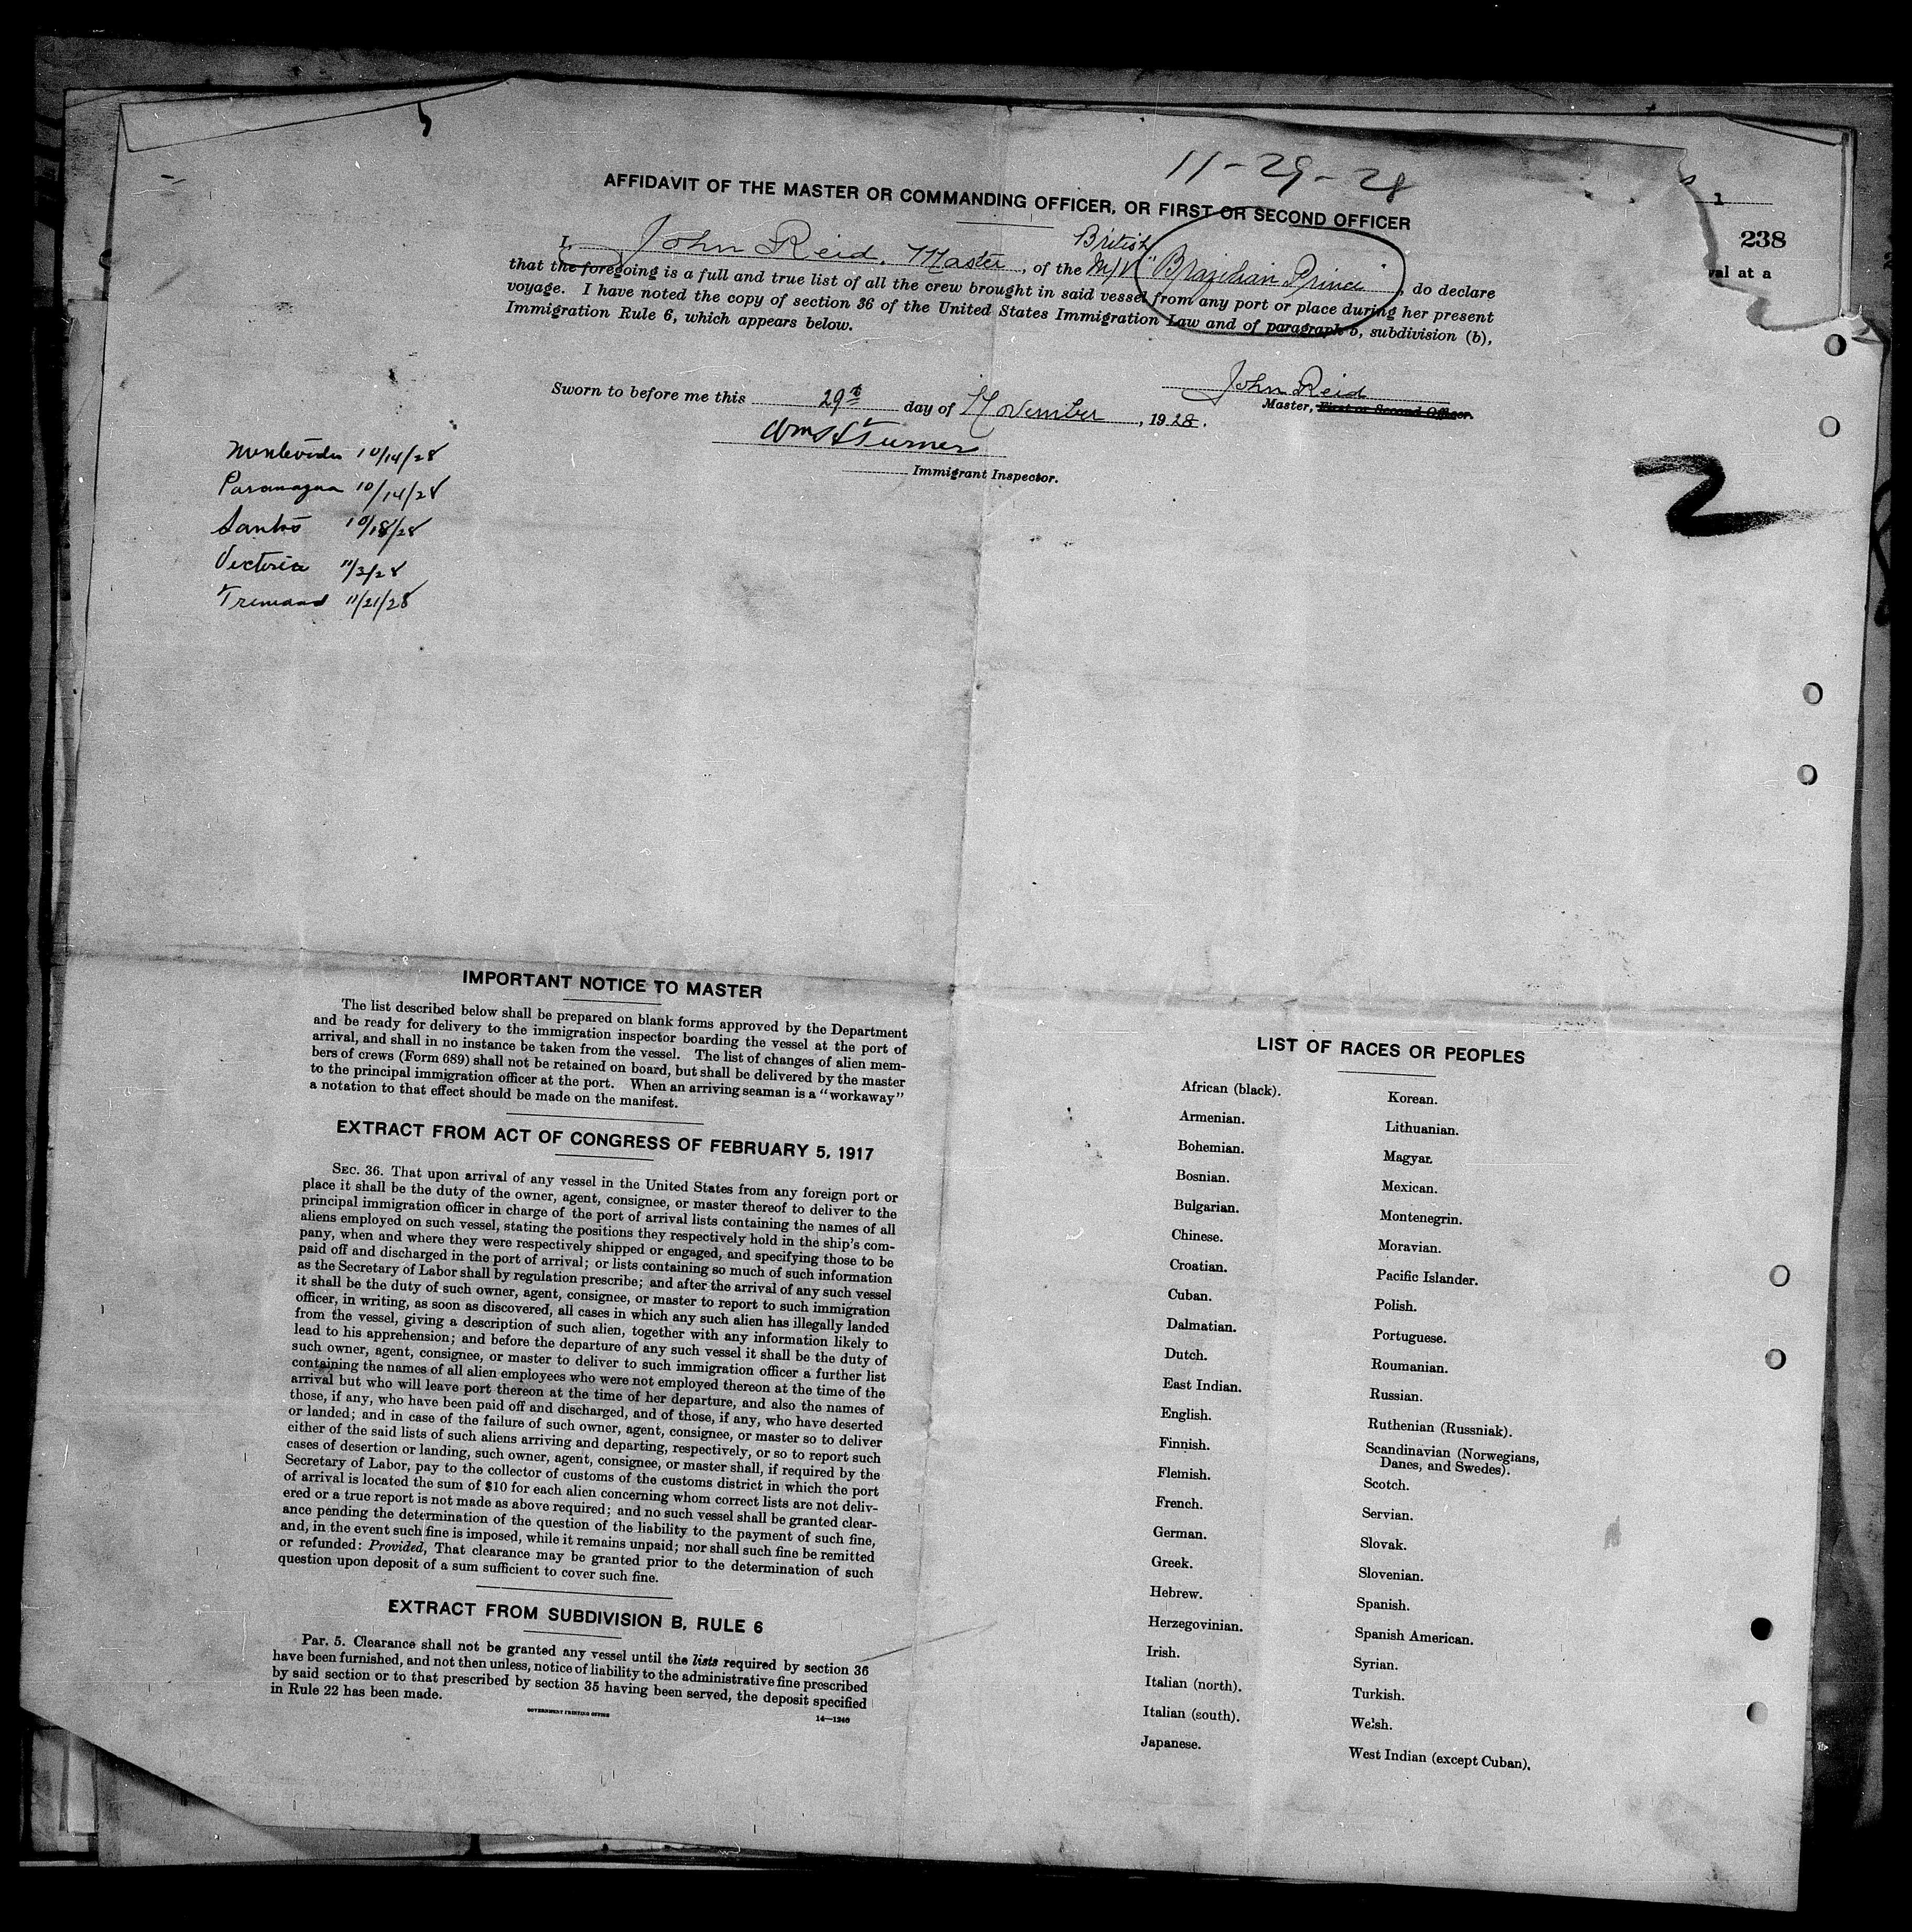 11-29-28
AFFIDAVIT OF THE MASTER OR COMMANDING OFFICER, OR FIRST OR SECOND OFFICER
1
238
val at a
British
I, John Reid, Master, of the M/V "Brazilian Prince", do declare
that the foregoing is a full and true list of all the crew brought in said vessel from any port or place during her present
voyage. I have noted the copy of section 36 of the United States Immigration Law and of paragraph 5, subdivision (b),
Immigration Rule 6, which appears below.
John Reid
Master, First or Second Officer.
Sworn to before me this 29th day of November, 1928.
Turner
Immigrant Inspector.
Montevideo 10/14/28
Paranagua 10/14/28
Santos 10/18/28
Victoria 11/3/28
11/21/28
2
IMPORTANT NOTICE TO MASTER
The list described below shall be prepared on blank forms approved by the Department
and be ready for delivery to the immigration inspector boarding the vessel at the port of
arrival, and shall in no instance be taken from the vessel. The list of changes of alien mem-
bers of crews (Form 689) shall not be retained on board, but shall be delivered by the master
to the principal immigration officer at the port. When an arriving seaman is a "workaway"
a notation to that effect should be made on the manifest.
EXTRACT FROM ACT OF CONGRESS OF FEBRUARY 5, 1917
SEC. 36. That upon arrival of any vessel in the United States from any foreign port or
place it shall be the duty of the owner, agent, consignee, or master thereof to deliver to the
principal immigration officer in charge of the port of arrival lists containing the names of all
aliens employed on such vessel, stating the positions they respectively hold in the ship's com-
pany, when and where they were respectively shipped or engaged, and specifying those to be
paid off and discharged in the port of arrival; or lists containing so much of such information
as the Secretary of Labor shall by regulation prescribe; and after the arrival of any such vessel
it shall be the duty of such owner, agent, consignee, or master to report to such immigration
officer, in writing, as soon as discovered, all cases in which any such alien has illegally landed
from the vessel, giving a description of such alien, together with any information likely to
lead to his apprehension; and before the departure of any such vessel it shall be the duty of
such owner, agent, consignee, or master to deliver to such immigration officer a further list
containing the names of all alien employees who were not employed thereon at the time of the
arrival but who will leave port thereon at the time of her departure, and also the names of
those, if any, who have been paid off and discharged, and of those, if any, who have deserted
or landed; and in case of the failure of such owner, agent, consignee, or master so to deliver
either of the said lists of such aliens arriving and departing, respectively, or so to report such
cases of desertion or landing, such owner, agent, consignee, or master shall, if required by the
Secretary of Labor, pay to the collector of customs of the customs district in which the port
of arrival is located the sum of $10 for each alien concerning whom correct lists are not deliv-
ered or a true report is not made as above required; and no such vessel shall be granted clear-
ance pending the determination of the question of the liability to the payment of such fine,
and, in the event such fine is imposed, while it remains unpaid; nor shall such fine be remitted
or refunded: Provided, That clearance may be granted prior to the determination of such
question upon deposit of a sum sufficient to cover such fine.
EXTRACT FROM SUBDIVISION B, RULE 6
Par. 5. Clearance shall not be granted any vessel until the lists required by section 36
have been furnished, and not then unless, notice of liability to the administrative fine prescribed
by said section or to that prescribed by section 35 having been served, the deposit specified
in Rule 22 has been made.
GOVERNMENT PRINTING OFFICE
14—1240
LIST OF RACES OR PEOPLES
African (black).
Armenian.
Bohemian.
Bosnian.
Bulgarian.
Chinese.
Croatian.
Cuban.
Dalmatian.
Dutch.
East Indian.
English.
Finnish.
Flemish.
French.
German.
Greek.
Hebrew.
Herzegovinian.
Irish.
Italian (north).
Italian (south).
Japanese.
Korean.
Lithuanian.
Magyar.
Mexican.
Montenegrin.
Moravian.
Pacific Islander.
Polish.
Portuguese.
Roumanian.
Russian.
Ruthenian (Russniak).
Scandinavian (Norwegians,
Danes, and Swedes).
Scotch.
Servian.
Slovak.
Slovenian.
Spanish.
Spanish American.
Syrian.
Turkish.
Welsh.
West Indian (except Cuban).